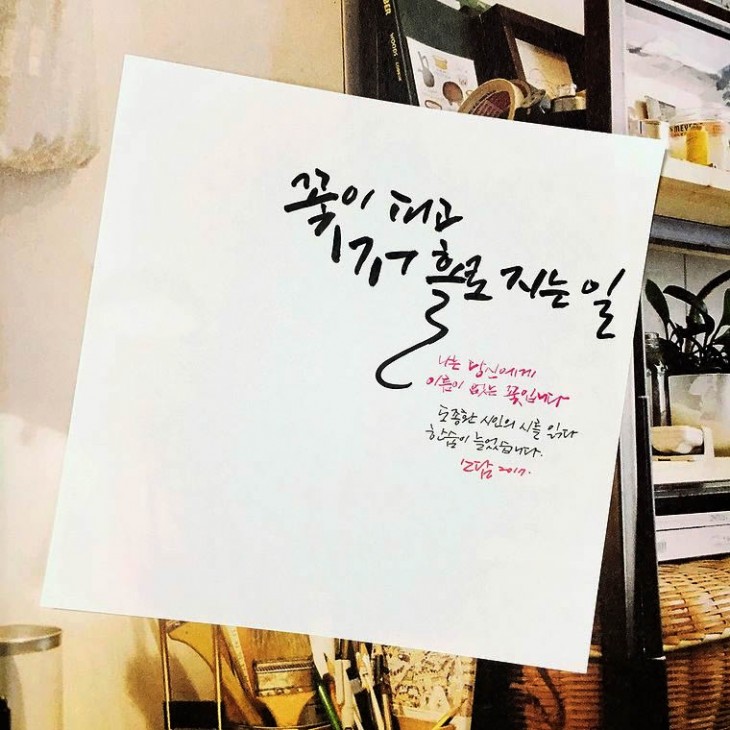 꽃이 피고
저 홀로 지는 일
나는 당신에게
이름이 없는 꽃입니다
도종환 시인의 시를 읽다
한숨이 늘었습니다.
2017.